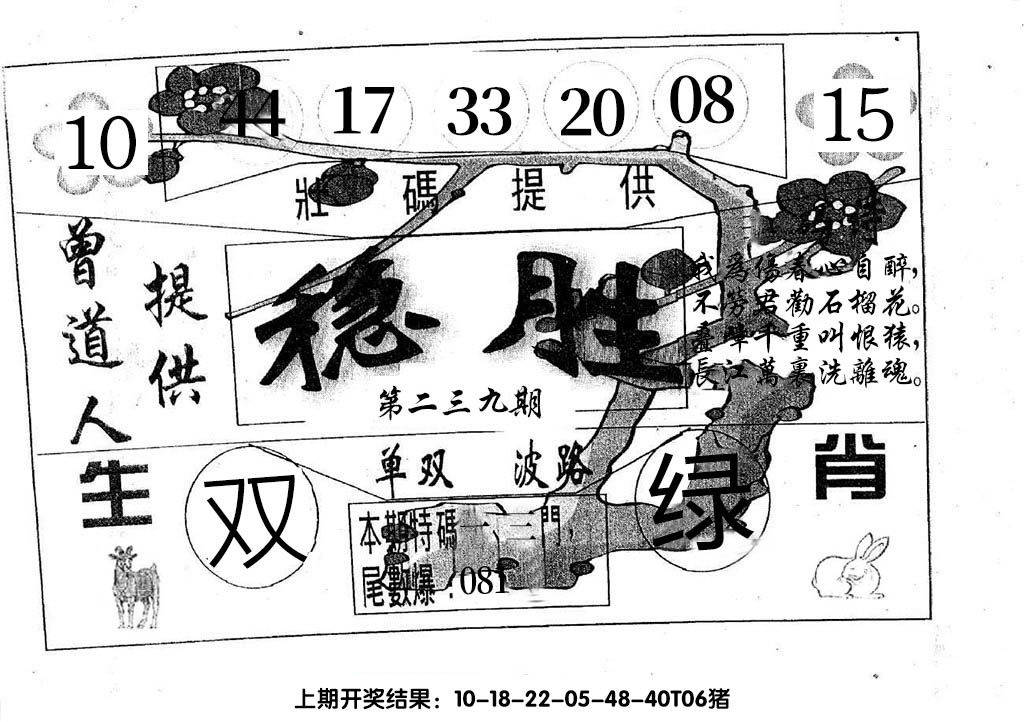 10 44 17 33 20 08 15
壯碼提供
曾道人
提供
稳胜
第二三九期
我為傷春心自醉，
不勞君勸石榴花。
疊嶂千重叫恨猿，
長江萬裏洗離魂。
单双 波路
生 肖
双 绿
本期特碼一、三門，
尾數爆：081
上期开奖结果：10-18-22-05-48-40T06猪